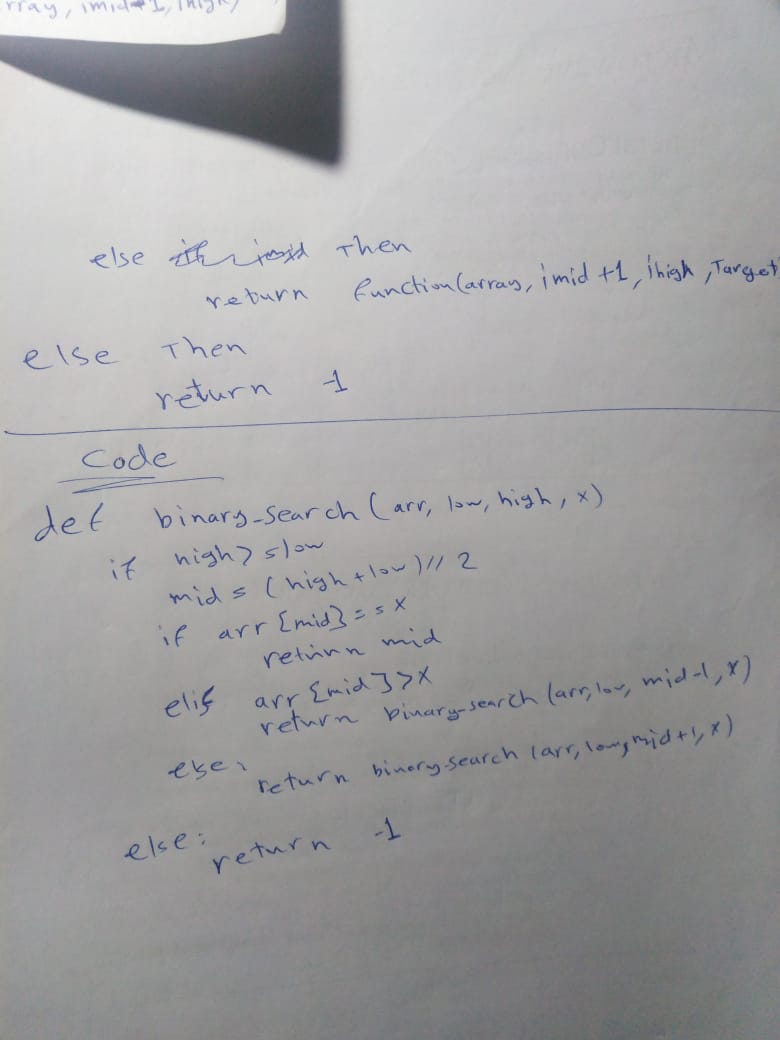 rray, imid+1, ihigh)
else Then
return function(array, imid +1, ihigh, Target
else Then
return -1
Code
def binary-search (arr, low, high, x)
if high>=low
mid = (high + low)// 2
if arr [mid] == x
return mid
elif arr [mid]>x
return binary-search (arr, low, mid-1, x)
else:
return binary-search (arr, low, mid+1, x)
else:
return -1